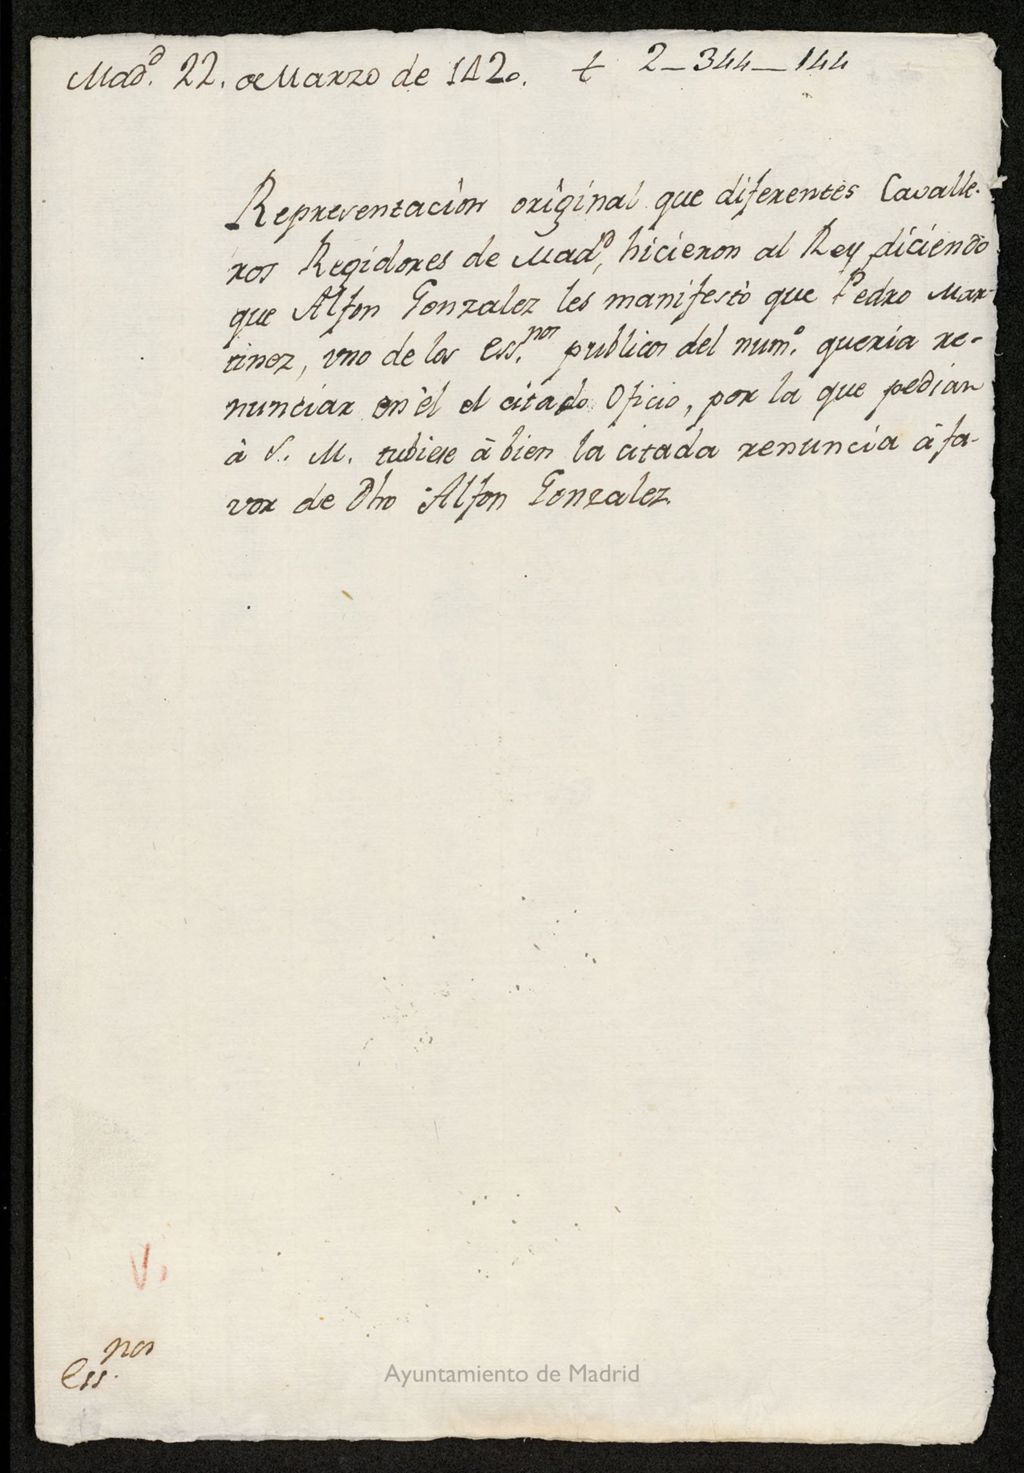 Mad.d 22. de Marzo de 1420. + 2-344-144
Representacion original que diferentes Cavalle-
ros Regidores de Mad.d, hicieron al Rey, diciendo
que Alfon Gonzalez les manifestò que Pedro Mar-
tinez, uno de los Ess.nos publicos del num.o queria re-
nunciar en èl el citado Oficio, por la que pedian
à S. M. tubiese à bien la citada renuncia à fa-
vor de Dho Alfon Gonzalez.
V.
Ess.nos
Ayuntamiento de Madrid